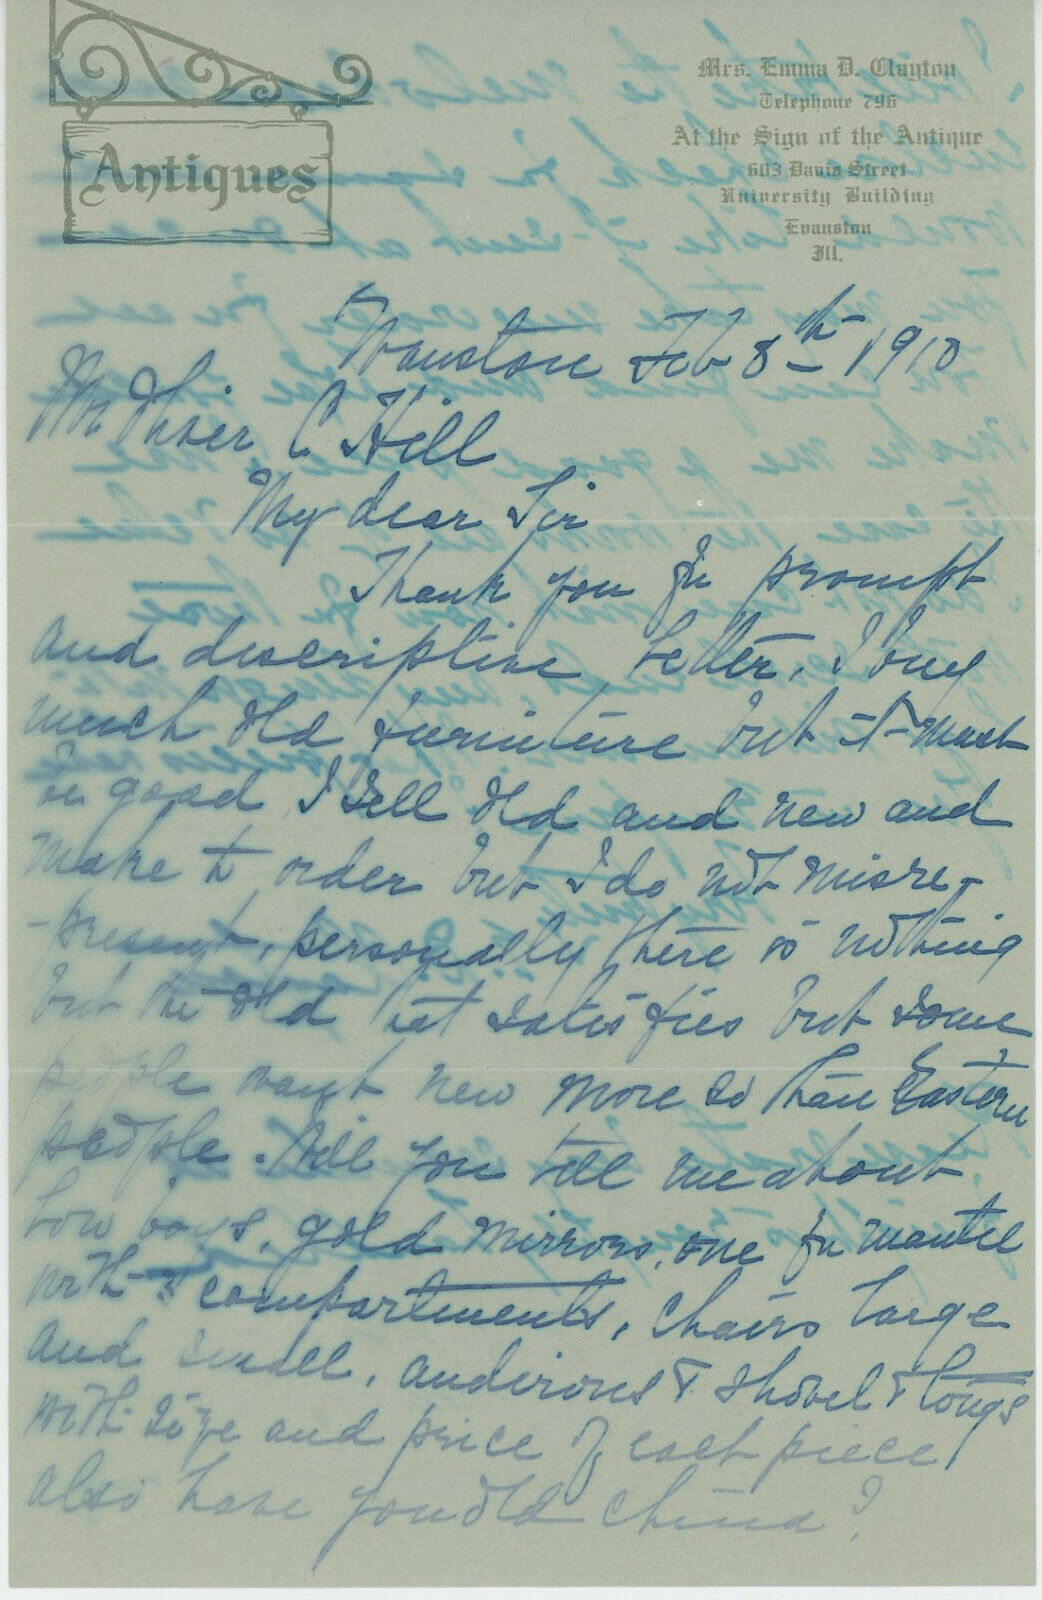 Antiques
Mrs. Emma D. Clayton
Telephone 796
At the Sign of the Antique
603 Davis Street
University Building
Evanston
Ill.
Evanston Feb 8th 1910
Mr C Hill
My dear Sir
Thank you for prompt
and descriptive letter, I buy
much old furniture but it must
be good, I sell old and new and
make to order but I do not misre-
-present, personally there is nothing
but the old that satisfies but some
people want new more so than Eastern
people. Will you tell me about
low boys, gold mirrors, one for mantel
with 3 compartments, chairs large
and small, andirons & shovel & tongs
with size and price of each piece,
also have you old china?